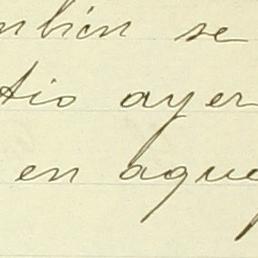 mbien se
tio ayer
en aque